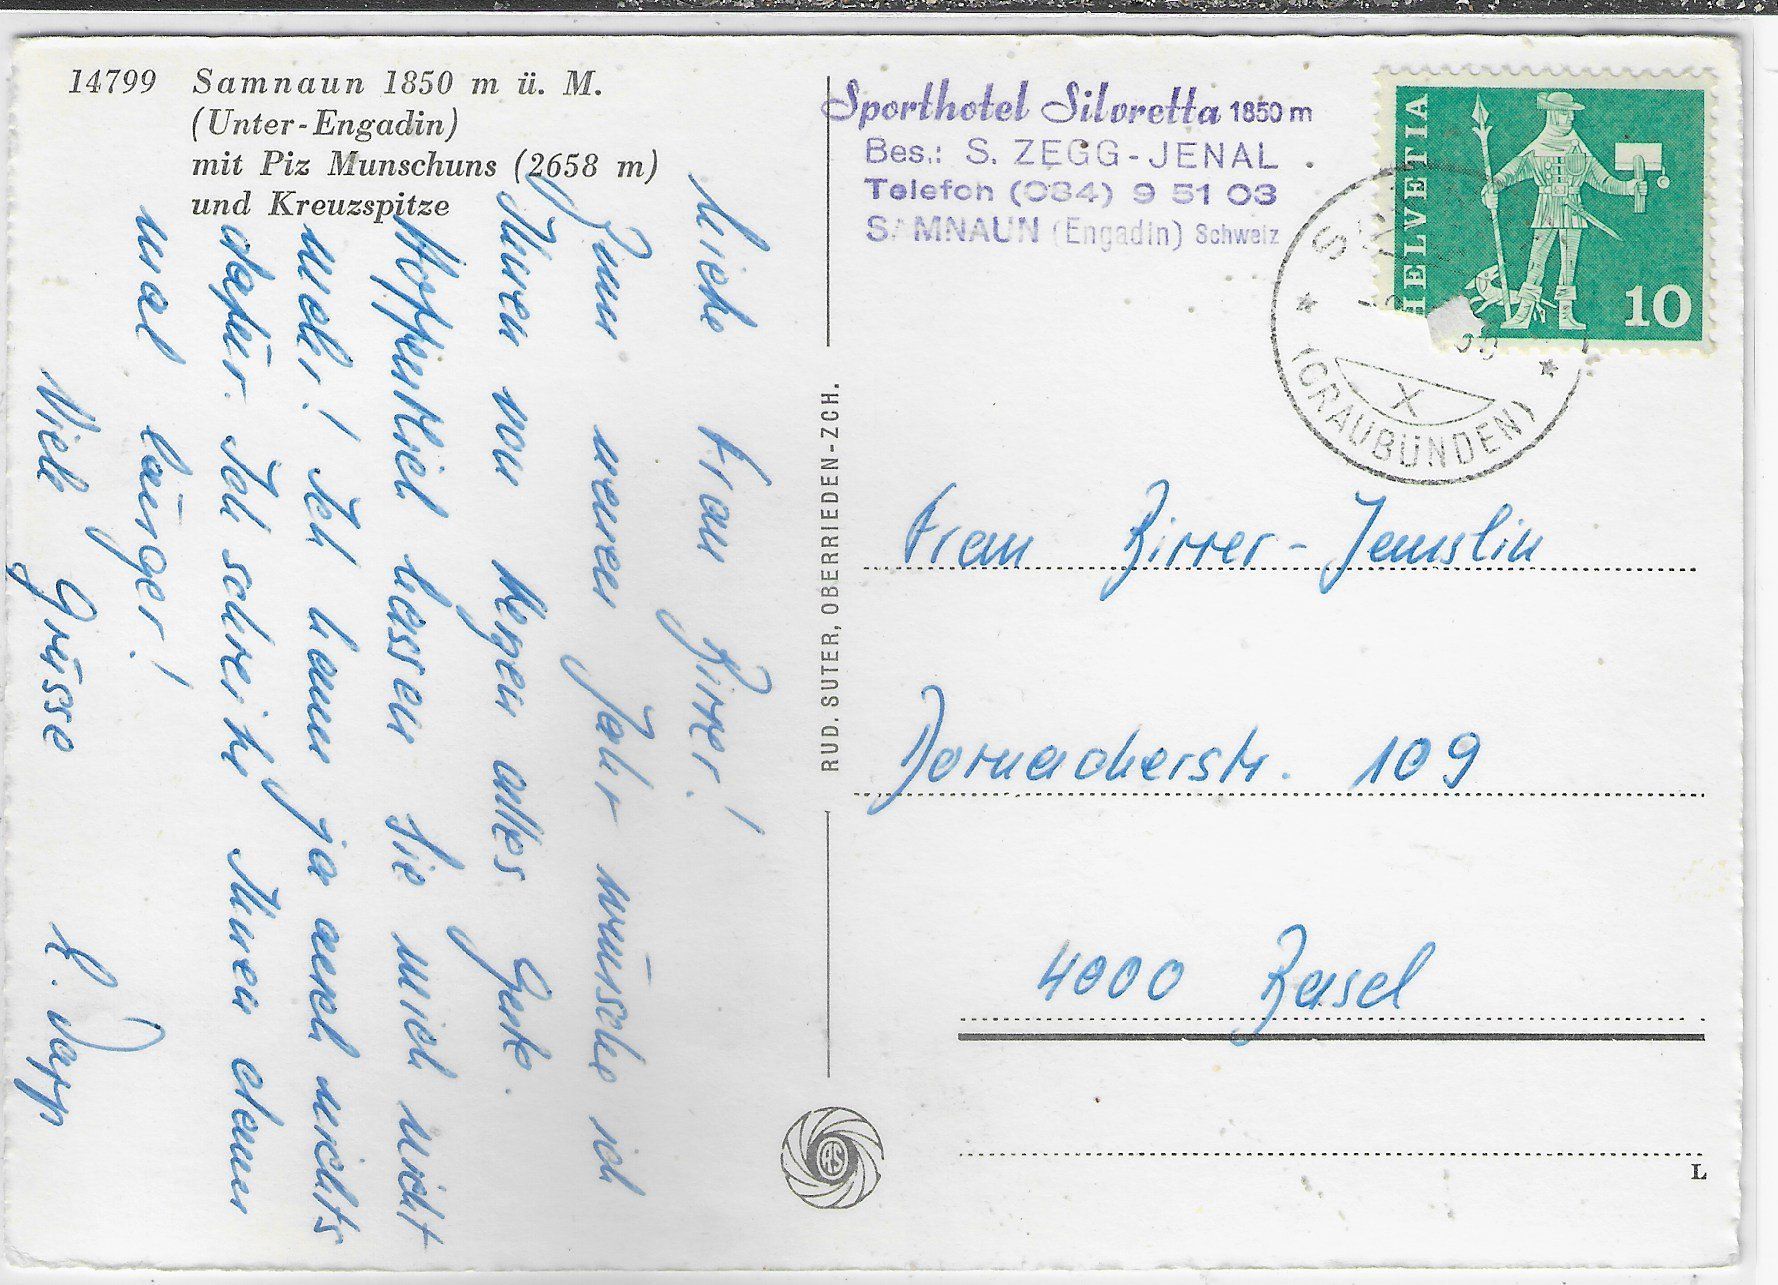 14799 Samnaun 1850 m ü. M.
(Unter-Engadin)
mit Piz Munschuns (2658 m)
und Kreuzspitze
Liebe Frau Birrer!
Zum neuen Jahr wünsche ich
Ihnen von Herzen alles Gute.
Hoffentlich hassen Sie mich nicht
mehr! Ich kann ja auch nichts
dafür. Ich schreibe Ihnen dann
mal länger!
Viele Grüsse
RUD. SUTER, OBERRIEDEN-ZCH.
RS
Sporthotel Silvretta 1850 m
Bes.: S. ZEGG-JENAL
Telefon (084) 9 51 03
SAMNAUN (Engadin) Schweiz
HELVETIA
10
(GRAUBÜNDEN)
X
Frau Birrer-Jemslin
Dornacherstr. 109
4000 Basel
L